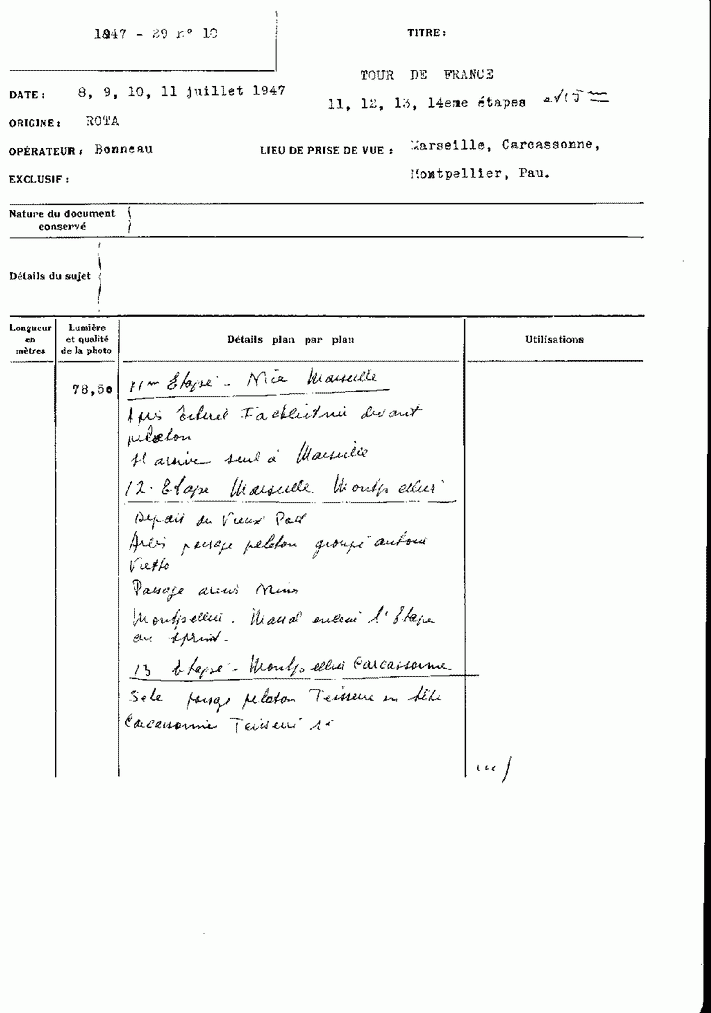 1947 - 29 n° 10
TITRE:
TOUR DE FRANCE
DATE: 8, 9, 10, 11 juillet 1947
11, 12, 13, 14eme étapes
ORIGINE: ROTA
OPÉRATEUR: Bonneau
LIEU DE PRISE DE VUE: Marseille, Carcassonne,
Montpellier, Pau.
EXCLUSIF:
Nature du document
conservé
Détails du sujet
Longueur
en
mètres
Lumière
et qualité
de la photo
Détails plan par plan
Utilisations
78,50
11me Etape - Nice Marseille
devant
peloton
Il arrive seul à Marseille
12. Etape Marseille. Montpellier
Départ du Vieux Port
Arles passage peloton groupé autour
Vietto
Passage
Montpellier. Massal enlève l'Etape
au sprint.
13 Etape - Montpellier Carcassonne
Sete passage peloton Teisseire en tête
Carcassonne Teisseire 1er
.../